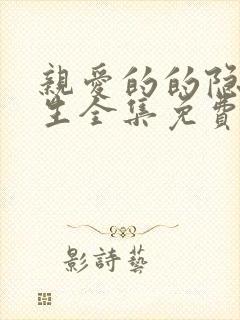 親愛的的隐
生全集免費
影詩藝